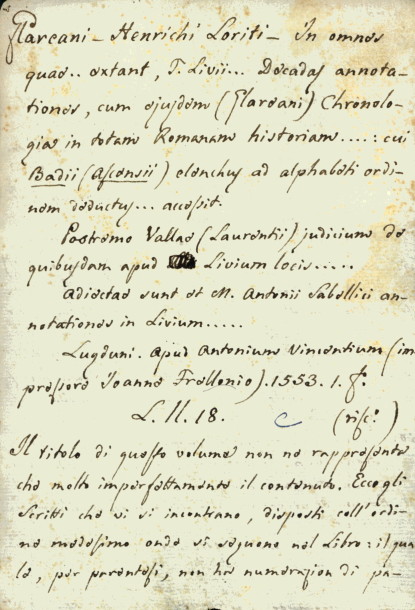 Glareani - Henrichi Loriti - In omnes
quae.. extant, T. Livii... Decadas annota-
tiones, cum ejusdem (Glareani) Chronolo-
gia in totam Romanam historiam....: cui
Badii (Ascensii) elenchus ad alphabeti ordi-
nem deductus... accessit.
Postremo Vallae (Laurentii) judicium de
quibusdam apud Livium locis.....
Adiectae sunt et M. Antonii Sabellici an-
notationes in Livium.....
Lugduni. Apud Antonium Vincentium (im
pressore Joanne Frellonio). 1553. 1. f.
L. ll. 18. (risc.)
Il titolo di questo volume non ne rappresenta
che molto imperfettamente il contenuto. Eccogli
Scritti che vi si incontrano, disposti coll'ordi-
ne medesimo onde si seguono nel Libro: il qua
le, per parentesi, non ha numerazion di pa-